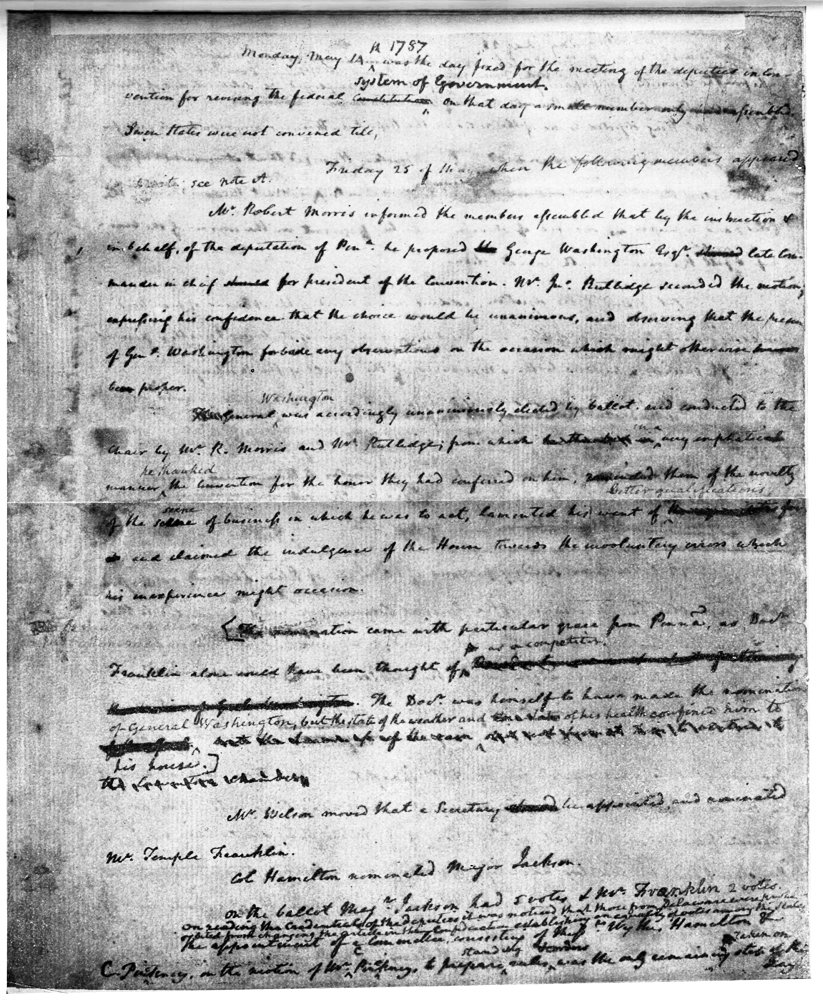 Monday, May 14th 1787 was the day fixed for the meeting of the deputies in Con-
system of Government.
vention for revising the federal Constitution on that day a small number only had assembled.
Seven States were not convened till,
Friday 25 of May, when the following members appeared
see note A.
Mr. Robert Morris informed the members assembled that by the instruction &
in behalf, of the deputation of Pena. he proposed George Washington Esqr. late Com-
mander in chief for president of the Convention. Mr. Jno. Rutlidge seconded the motion;
expressing his confidence that the choice would be unanimous, and observing that the presence
of Genl. Washington forbade any observations on the occasion which might otherwise
been proper.
Washington
General was accordingly unanimously elected by ballot, and conducted to the
chair by Mr. R. Morris and Mr. Rutlidge; from which in a very emphatic
he thanked
manner the Convention for the honor they had conferred on him, reminded them of the novelty
better qualifications,
scene
of the scene of business in which he was to act, lamented his want of
and claimed the indulgence of the House towards the involuntary errors which
his inexperience might occasion.
[The nomination came with particular grace from Penna, as Docr.
as a competitor.
Franklin alone could have been thought of
The Docr. was himself to have made the nomination
of General Washington, but the state of the weather and of his health confined him to
his house.]
Mr. Wilson moved that a Secretary be appointed, and nominated
Mr. Temple Franklin.
Col Hamilton nominated Major Jackson.
on the ballot Majr. Jackson had 5 votes & Mr. Franklin 2 votes.
on reading the Credentials of the deputies it was noticed that those from Delaware were prohib-
ited from changing the article in the Confederation establishing an equality of votes among the States.
The appointment of a Committee, consisting of Mrs. Wythe, Hamilton &
standing
taken on
C. Pinkney, on the motion of Mr. C. Pinkney, to prepare rules, was the only remaining step of this
day